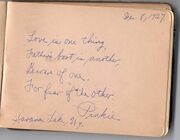 Dec. 8, 1927.
Love is one thing,
Father's boot is another,
Beware of one.
For fear of the other.
Pinkie.
Saranac Lake, N.Y.